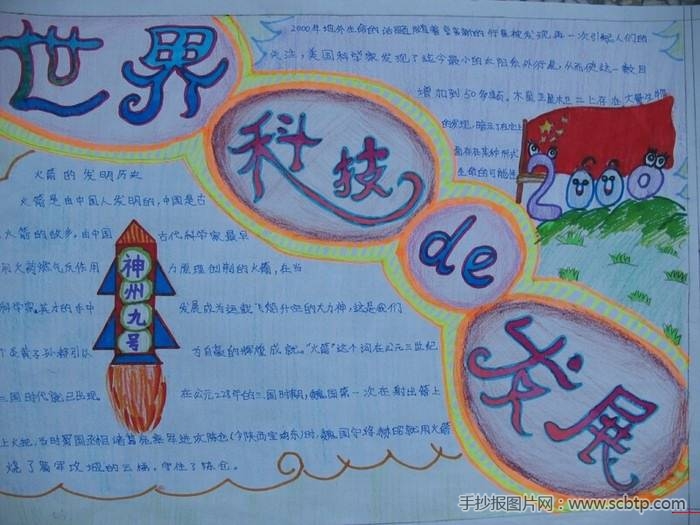 世界
科技
de
发展
2000年地外生命的话题随着
行星被发现再一次引起人们的
关注,美国科学家发现了迄今最小的太阳系外行星,从而使这一数目
增加到50多颗。木星卫星木卫二上存在大量
的发现,暗示了在
面存在某种形式
生命的可能性
2000
火箭的发明历史
火箭是由中国人发明的,中国是古
火箭的故乡,由中国古代科学家最早
火箭燃气反作用力原理创制的火箭,在当
科学家
手中发展成为运载飞船升空的大力神,这是我们
炎黄子孙都引以为自豪的辉煌成就。“火箭”这个词在公元三世纪
三国时代就已出现。在公元228年的三国时期,魏国第一次在射出箭上
上火把,当时蜀国丞相诸葛亮率军进攻陈仓(今陕西宝鸡东)时,魏国守将郝昭就用火箭
烧了蜀军攻城的云梯,守住了陈仓。
神州九号
手抄报图片网:www.scbtp.com